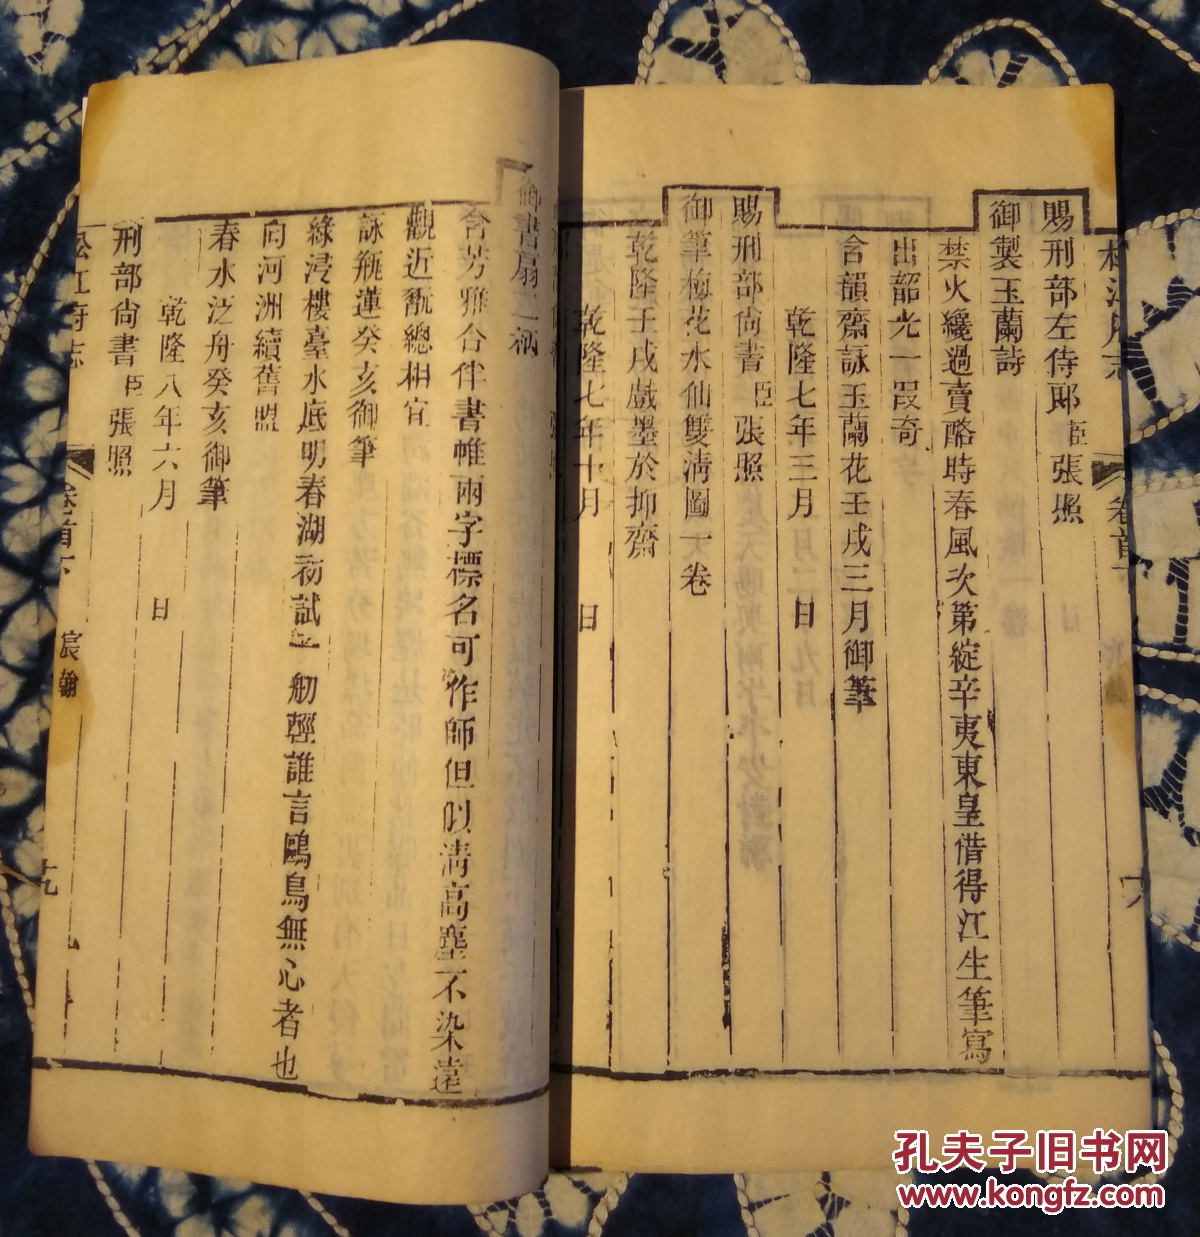 松江府志
卷首下
賜刑部左侍郎臣張照
御製玉蘭詩
禁火纔過賣酪時春風次第綻辛夷東皇借得江生筆寫
出韶光一段奇
含韻齋詠玉蘭花壬戌三月御筆
乾隆七年三月二日
賜刑部尚書臣張照
御筆梅花水仙雙清圖一大卷
乾隆壬戌戲墨於抑齋
乾隆七年十月 日
御書扇二柄
含芳雅合伴書帷兩字標名可作師但以淸高塵不染遠
觀近翫總相宜
詠瓶蓮癸亥御筆
綠浸樓臺水底明春湖初試一舠輕誰言鷗鳥無心者也
向河洲續舊盟
春水泛舟癸亥御筆
乾隆八年六月 日
刑部尙書臣張照
松江府志
卷首下
宸翰
十九
孔夫子旧书网
www.kongfz.com